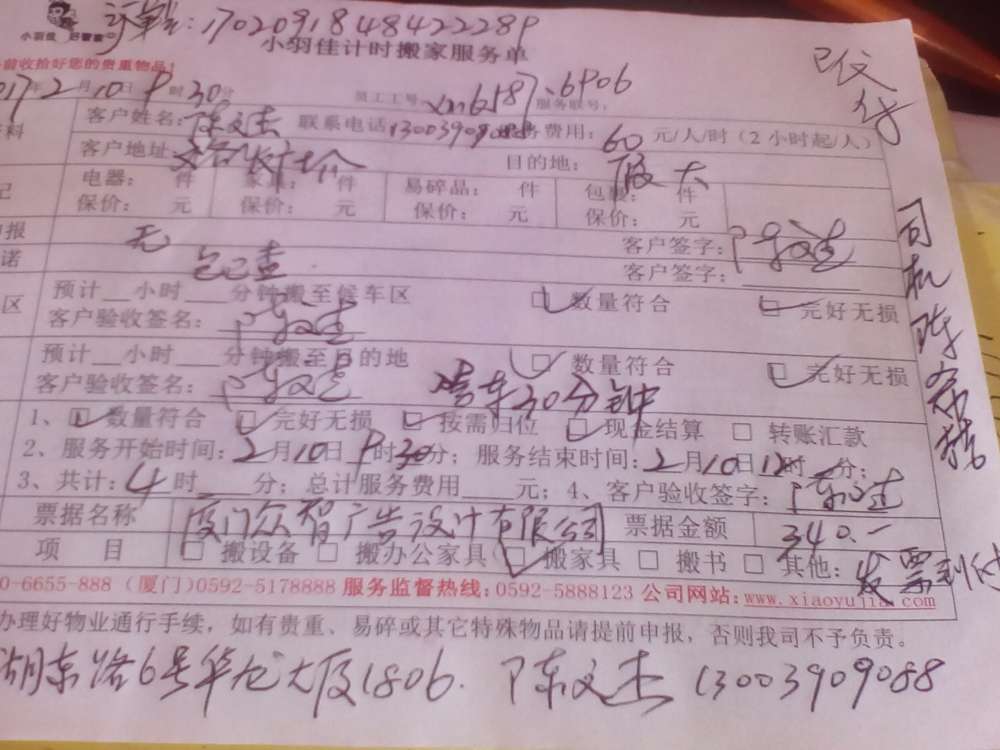 小羽佳 好管家
订单号：170209184842228P
小羽佳计时搬家服务单
已交付
前收拾好您的贵重物品！
017年2月10日9时30分 员工工号：xm6587、6906 服务联号：
客户姓名：陈文杰 联系电话13003909088服务费用：60元/人/时（2小时起/人）
客户地址： 目的地：厦大
电器： 件 家具： 件 易碎品： 件 包裹： 件
保价： 元 保价： 元 保价： 元 保价： 元
申报 无 客户签字：陈文杰
诺 自己查 客户签字：
预计__小时___分钟搬至候车区 数量符合 完好无损
区 客户验收签名：陈文杰
预计__小时___分钟搬至目的地 数量符合 完好无损
客户验收签名：陈文杰 堵车30分钟
司机陈
1、□数量符合 □完好无损 □按需归位 □现金结算 □转账汇款
2、服务开始时间：2月10日9时30分；服务结束时间：2月10日12时 分；
3、共计：4时___分；总计服务费用___元；4、客户验收签字：陈文杰
票据名称 厦门众智广告设计有限公司 票据金额 340.-
项 目 □搬设备 □搬办公家具 □搬家具 □搬书 □其他：发票到付
0-6655-888 (厦门)0592-5178888 服务监督热线：0592-5888123 公司网站：www.xiaoyujia.com
办理好物业通行手续，如有贵重、易碎或其它特殊物品请提前申报，否则我司不予负责。
湖东路6号华龙大厦1806. 陈文杰 13003909088